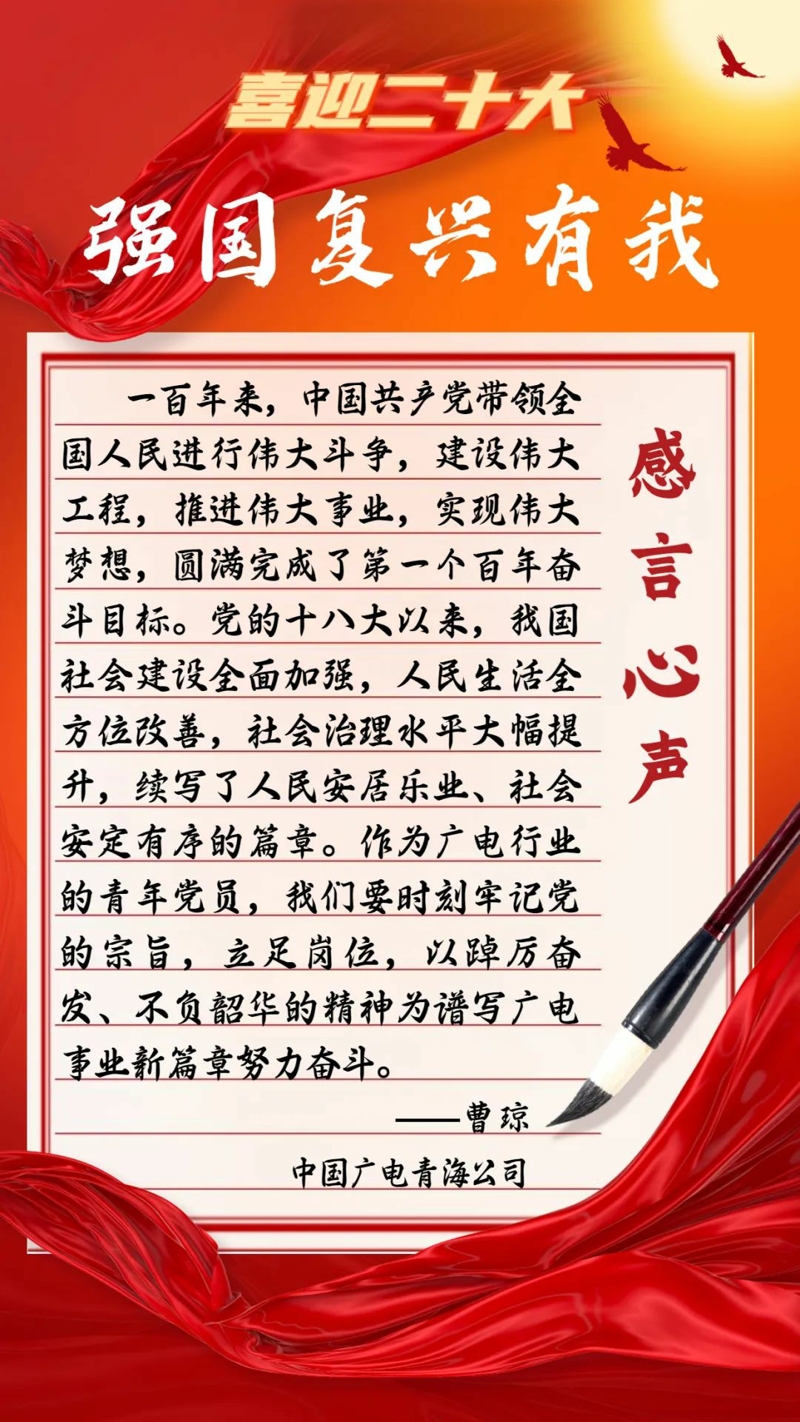 喜迎二十大
强国复兴有我
一百年来，中国共产党带领全
国人民进行伟大斗争，建设伟大
工程，推进伟大事业，实现伟大
梦想，圆满完成了第一个百年奋
斗目标。党的十八大以来，我国
社会建设全面加强，人民生活全
方位改善，社会治理水平大幅提
升，续写了人民安居乐业、社会
安定有序的篇章。作为广电行业
的青年党员，我们要时刻牢记党
的宗旨，立足岗位，以踔厉奋
发、不负韶华的精神为谱写广电
事业新篇章努力奋斗。
——曹琼
中国广电青海公司
感言心声